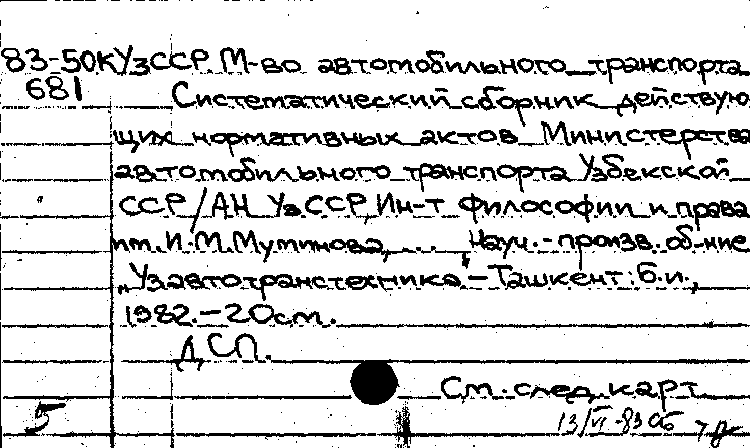 83-50К УзССР. М-во автомобильного транспорта
681 Систематический сборник действую
щих нормативных актов Министерства
автомобильного транспорта Узбекской
ССР / АН УзССР, Ин-т философии и права
им. И.М. Муминова, ... Науч.-произв. об-ние
„Узавтотранстехника. – Ташкент: б.и.,
1982. – 20см.
ДСП.
См. след. карт.
5 13/VI-83